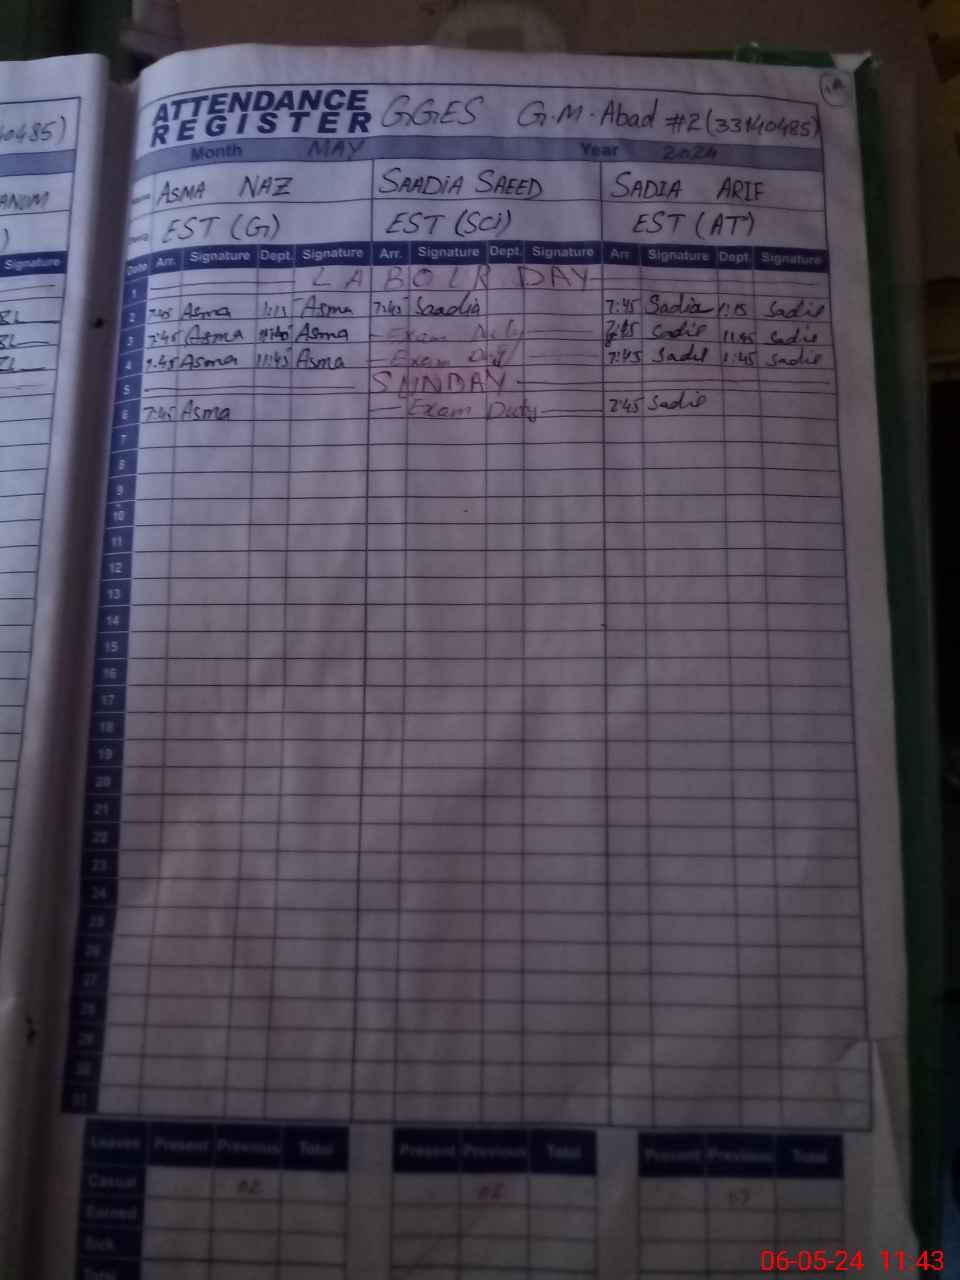 40485)
ATTENDANCE
REGISTER GGES G.M.Abad #2 (33140485)
Month MAY Year 2024
ANUM
ASMA NAZ SAADIA SAEED SADIA ARIF
)
EST (G) EST (SCi) EST (AT)
Signature
Date Arr. Signature Dept. Signature Arr. Signature Dept. Signature Arr. Signature Dept. Signature
1 LABOUR DAY
2 7:45 Asma 1:15 Asma 7:45 Saadia 7:45 Sadia 1:15 Sadie
3 7:45 Asma 11:40 Asma Exam Duty Sadie 11:45 Sadie
4 7:45 Asma 11:45 Asma Exam Duty 7:45 Sadie 11:45 Sadie
5 SUNDAY
6 7:45 Asma Exam Duty 7:45 Sadie
7
8
9
10
11
12
13
14
15
16
17
18
19
20
21
22
23
24
25
26
27
28
29
30
31
Leaves Present Previous Total Present Previous Total Present Previous Total
Casual 02 02 03
Earned
Sick
Total
06-05-24 11:43